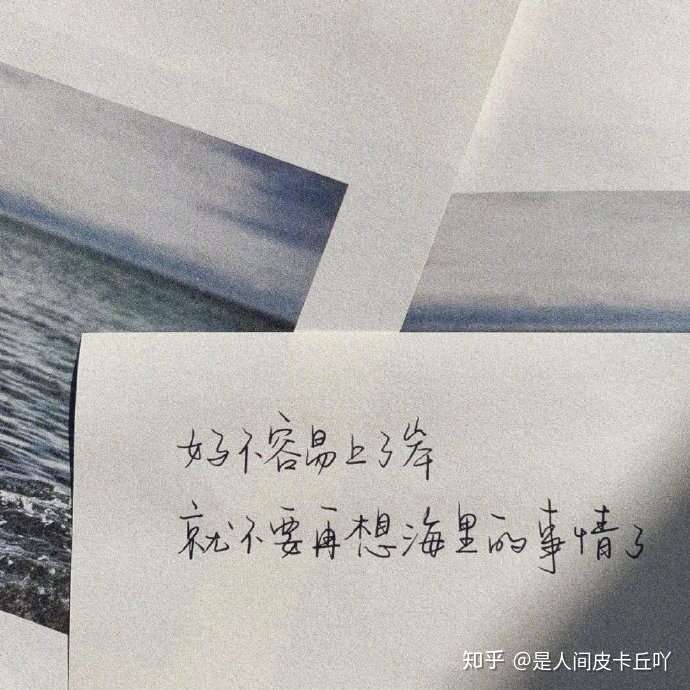 好不容易上了岸
就不要再想海里的事情了
知乎 @是人间皮卡丘吖